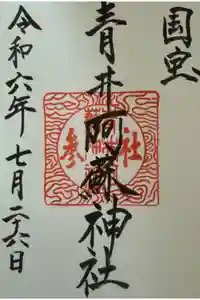 国宝
青井阿蘇神社
令和六年七月二十六日